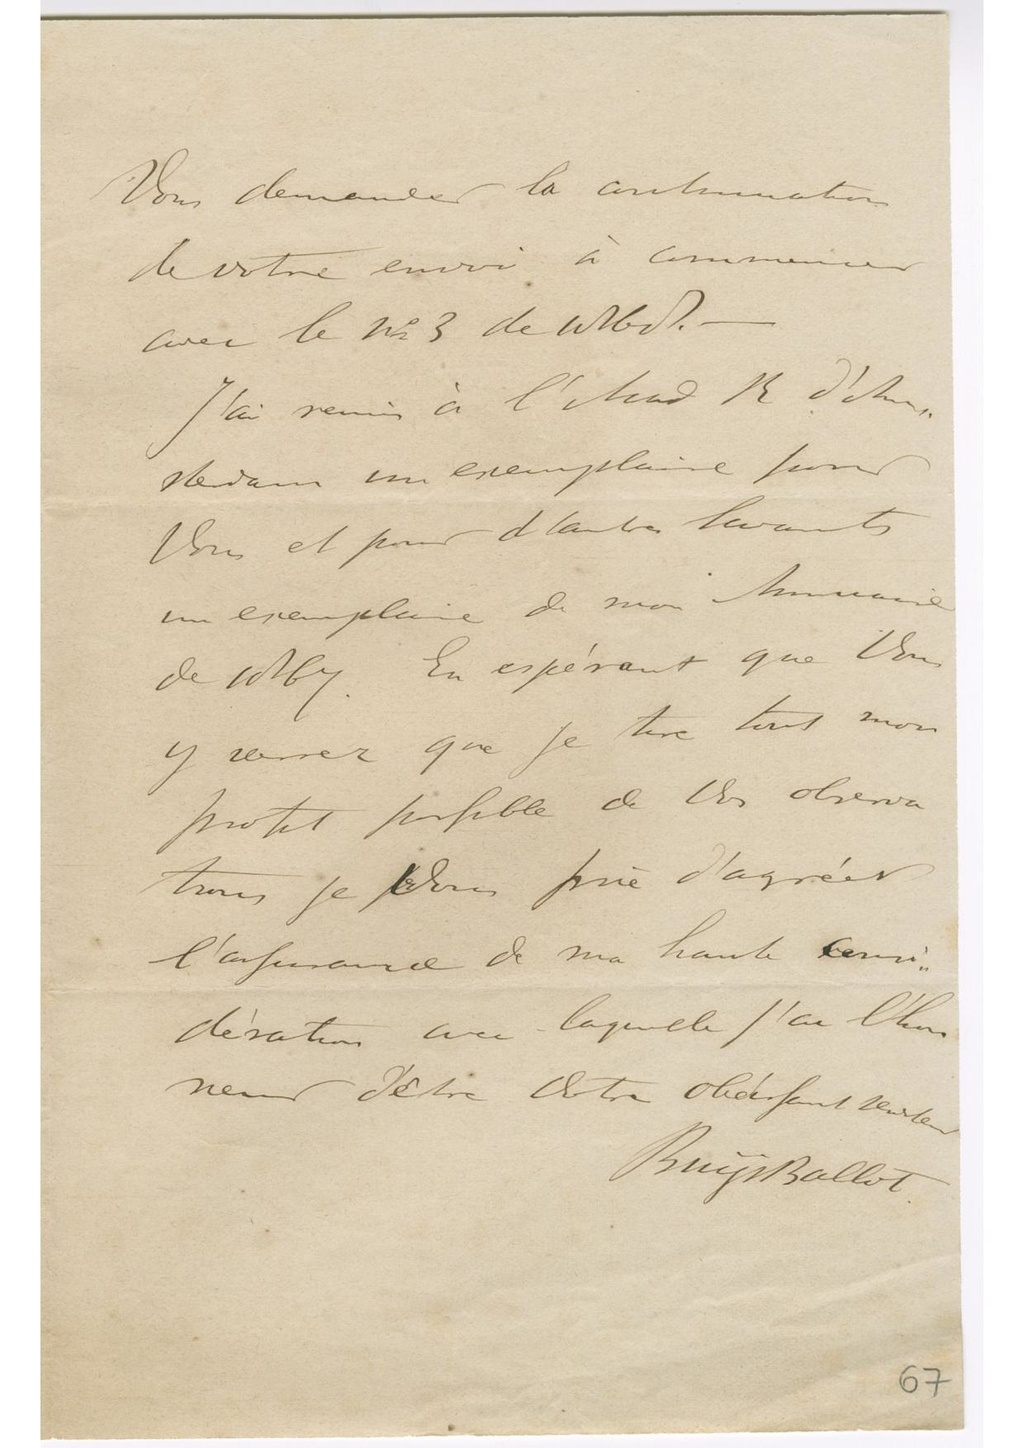 Vous demander la continuation
de votre envoi à commencer
avec le No 3 de 1868. —
J'ai remis à l'Acad R d'Am-
sterdam un exemplaire pour
Vous et pour d'autres savants
un exemplaire de mon Annuaire
de 1867. En espérant que Vous
y verrez que je tire tout mon
profit possible de Vos observa
tions je Vous prie d'agréer
l'assurance de ma haute consi-
dération avec laquelle j'ai l'hon
neur d'être Votre obéissant serviteur
Buijs Ballot.
67